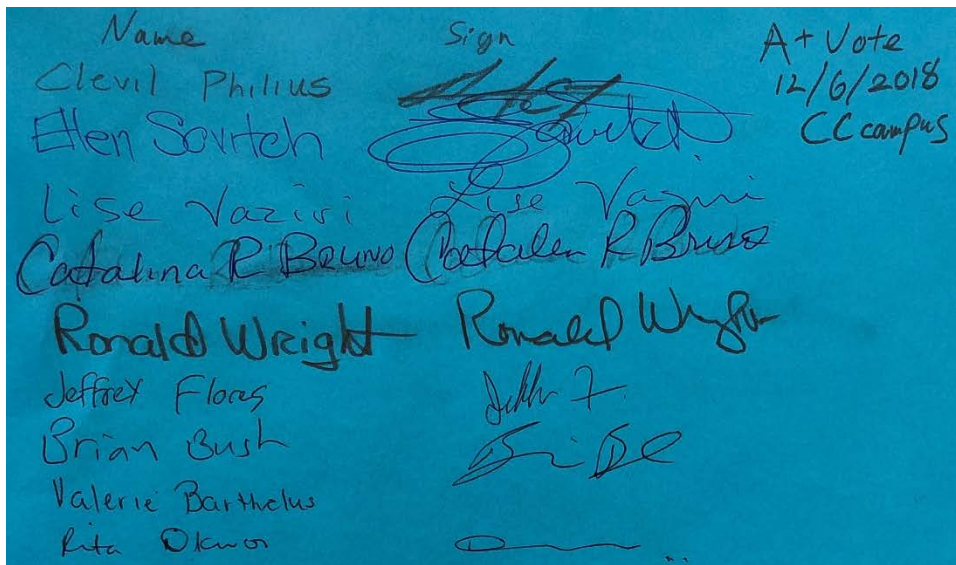 Name Sign A+ Vote
12/6/2018
CC campus
Clevil Philius
Ellen Sovitch Sovitch
Lise Vaziri Lise Vaziri
Catalina R Bruno Catalin R Bruno
Ronald Wright Ronald Wright
Jeffrey Flores
Brian Bush
Valerie Barthelus
Rita Okwor